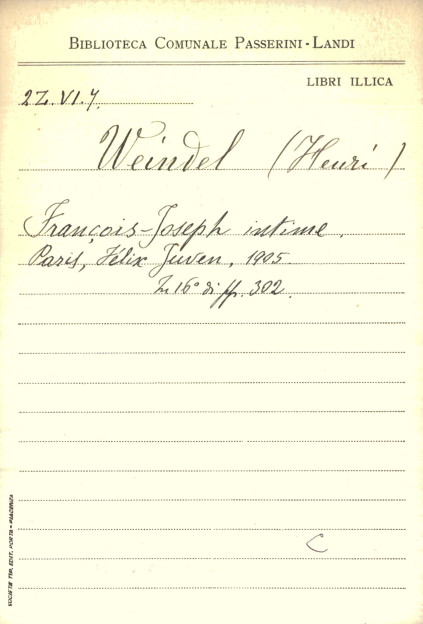 BIBLIOTECA COMUNALE PASSERINI-LANDI
LIBRI ILLICA
2Z.VI.7.
Weindel (Henri)
François-Joseph intime.
Paris, Félix Juven, 1905
In 16° di pp. 302.
C
SOCIETÀ TIP. EDIT. PORTA - PIACENZA